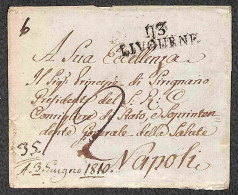 6
113
LIVOURNE
A Sua Eccellenza
Il Sig. Principe di Sirignano
Presidente del S. R. C.
Consigliere di Stato, e Soprinten-
dente Generale della Salute
2
35.
Napoli
A. 3. Giugno 1810.